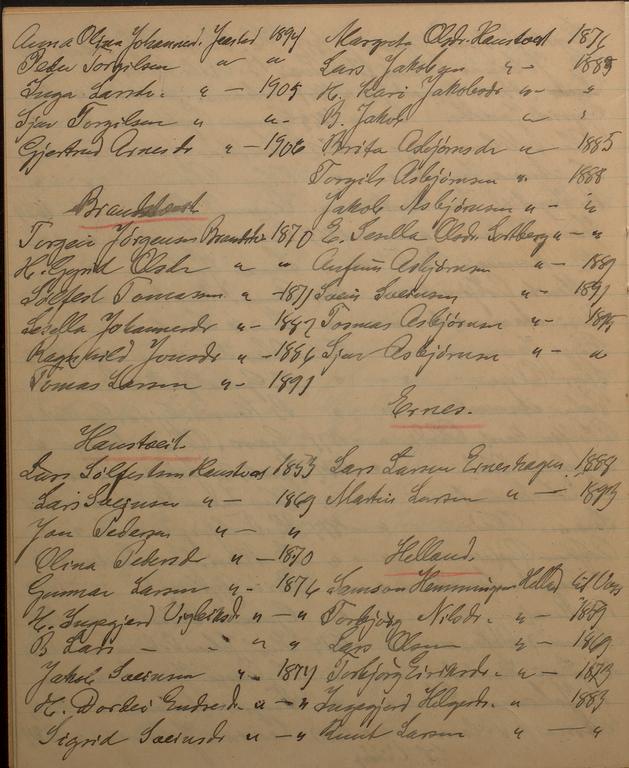 Anna Olina Johannesd. 1894
Peder Torgilsen " "
Inga Larsdr. " — 1905
Sjur Torgilsen " "-
Gjertrud Arnesdr " — 1906
Brandstveit
Torgeir Jørgensen 1870
H. Gyrid Olsdr " "
Sølfest Tomassen " -1871
Sesella Johannesdr "-
Ragnhild Jonsdr "- 1886
Tomas Larsen "- 1891
Haustveit.
Lars Sølfestsen Haustveit 1853
Lars Sveinsen " — 1869
Jon Pedersen " — "
Olina Pedersdr " — 1870
Gunnar Larsen "- 1874
H. Ingegjerd Vigleiksdr " — "
B Lars — " "
Jakob Sveinsen "- 1874
H. Dordei Endresdr " — "
Sigrid Sveinsdr " — "
Margreta Olsdr. Haustveit 1876
Lars Jakobsen " — 1885
H. Kari Jakobsdr "- "
B. Jakob " "
Brita Asbjørnsdr " 1885
Torgils Asbjørnsen ". 1888
Jakob Asbjørnsen " — "
E. Sesella Olsdr. " — "
Anfinn Asbjørnsen " — 1889
Svein Sveinsen " — 1891
Tosmas Asbjørnsen "-
Sjur Asbjørnsen "- "
Ernes.
Lars Larsen Erneshagen 1888
Martin Larsen " — 1893
Helland.
Samson Hemmingsen Helland
Torbjørg Nilsdr. " — 1869
Lars Olsen "- 1869
Torbjørg Eiriksdr. " — 1873
Ingegjerd Helgesdr. " 1883
Knut Larsen " — "